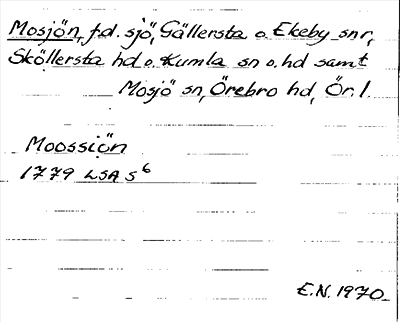 Mosjön, f.d. sjö, Gällersta o. Ekeby snr,
Sköllersta hd. o. Kumla sn o. hd samt
Mosjö sn, Örebro hd, Ör. l.
Moossiön
1779 LSA S6
E.N. 1970